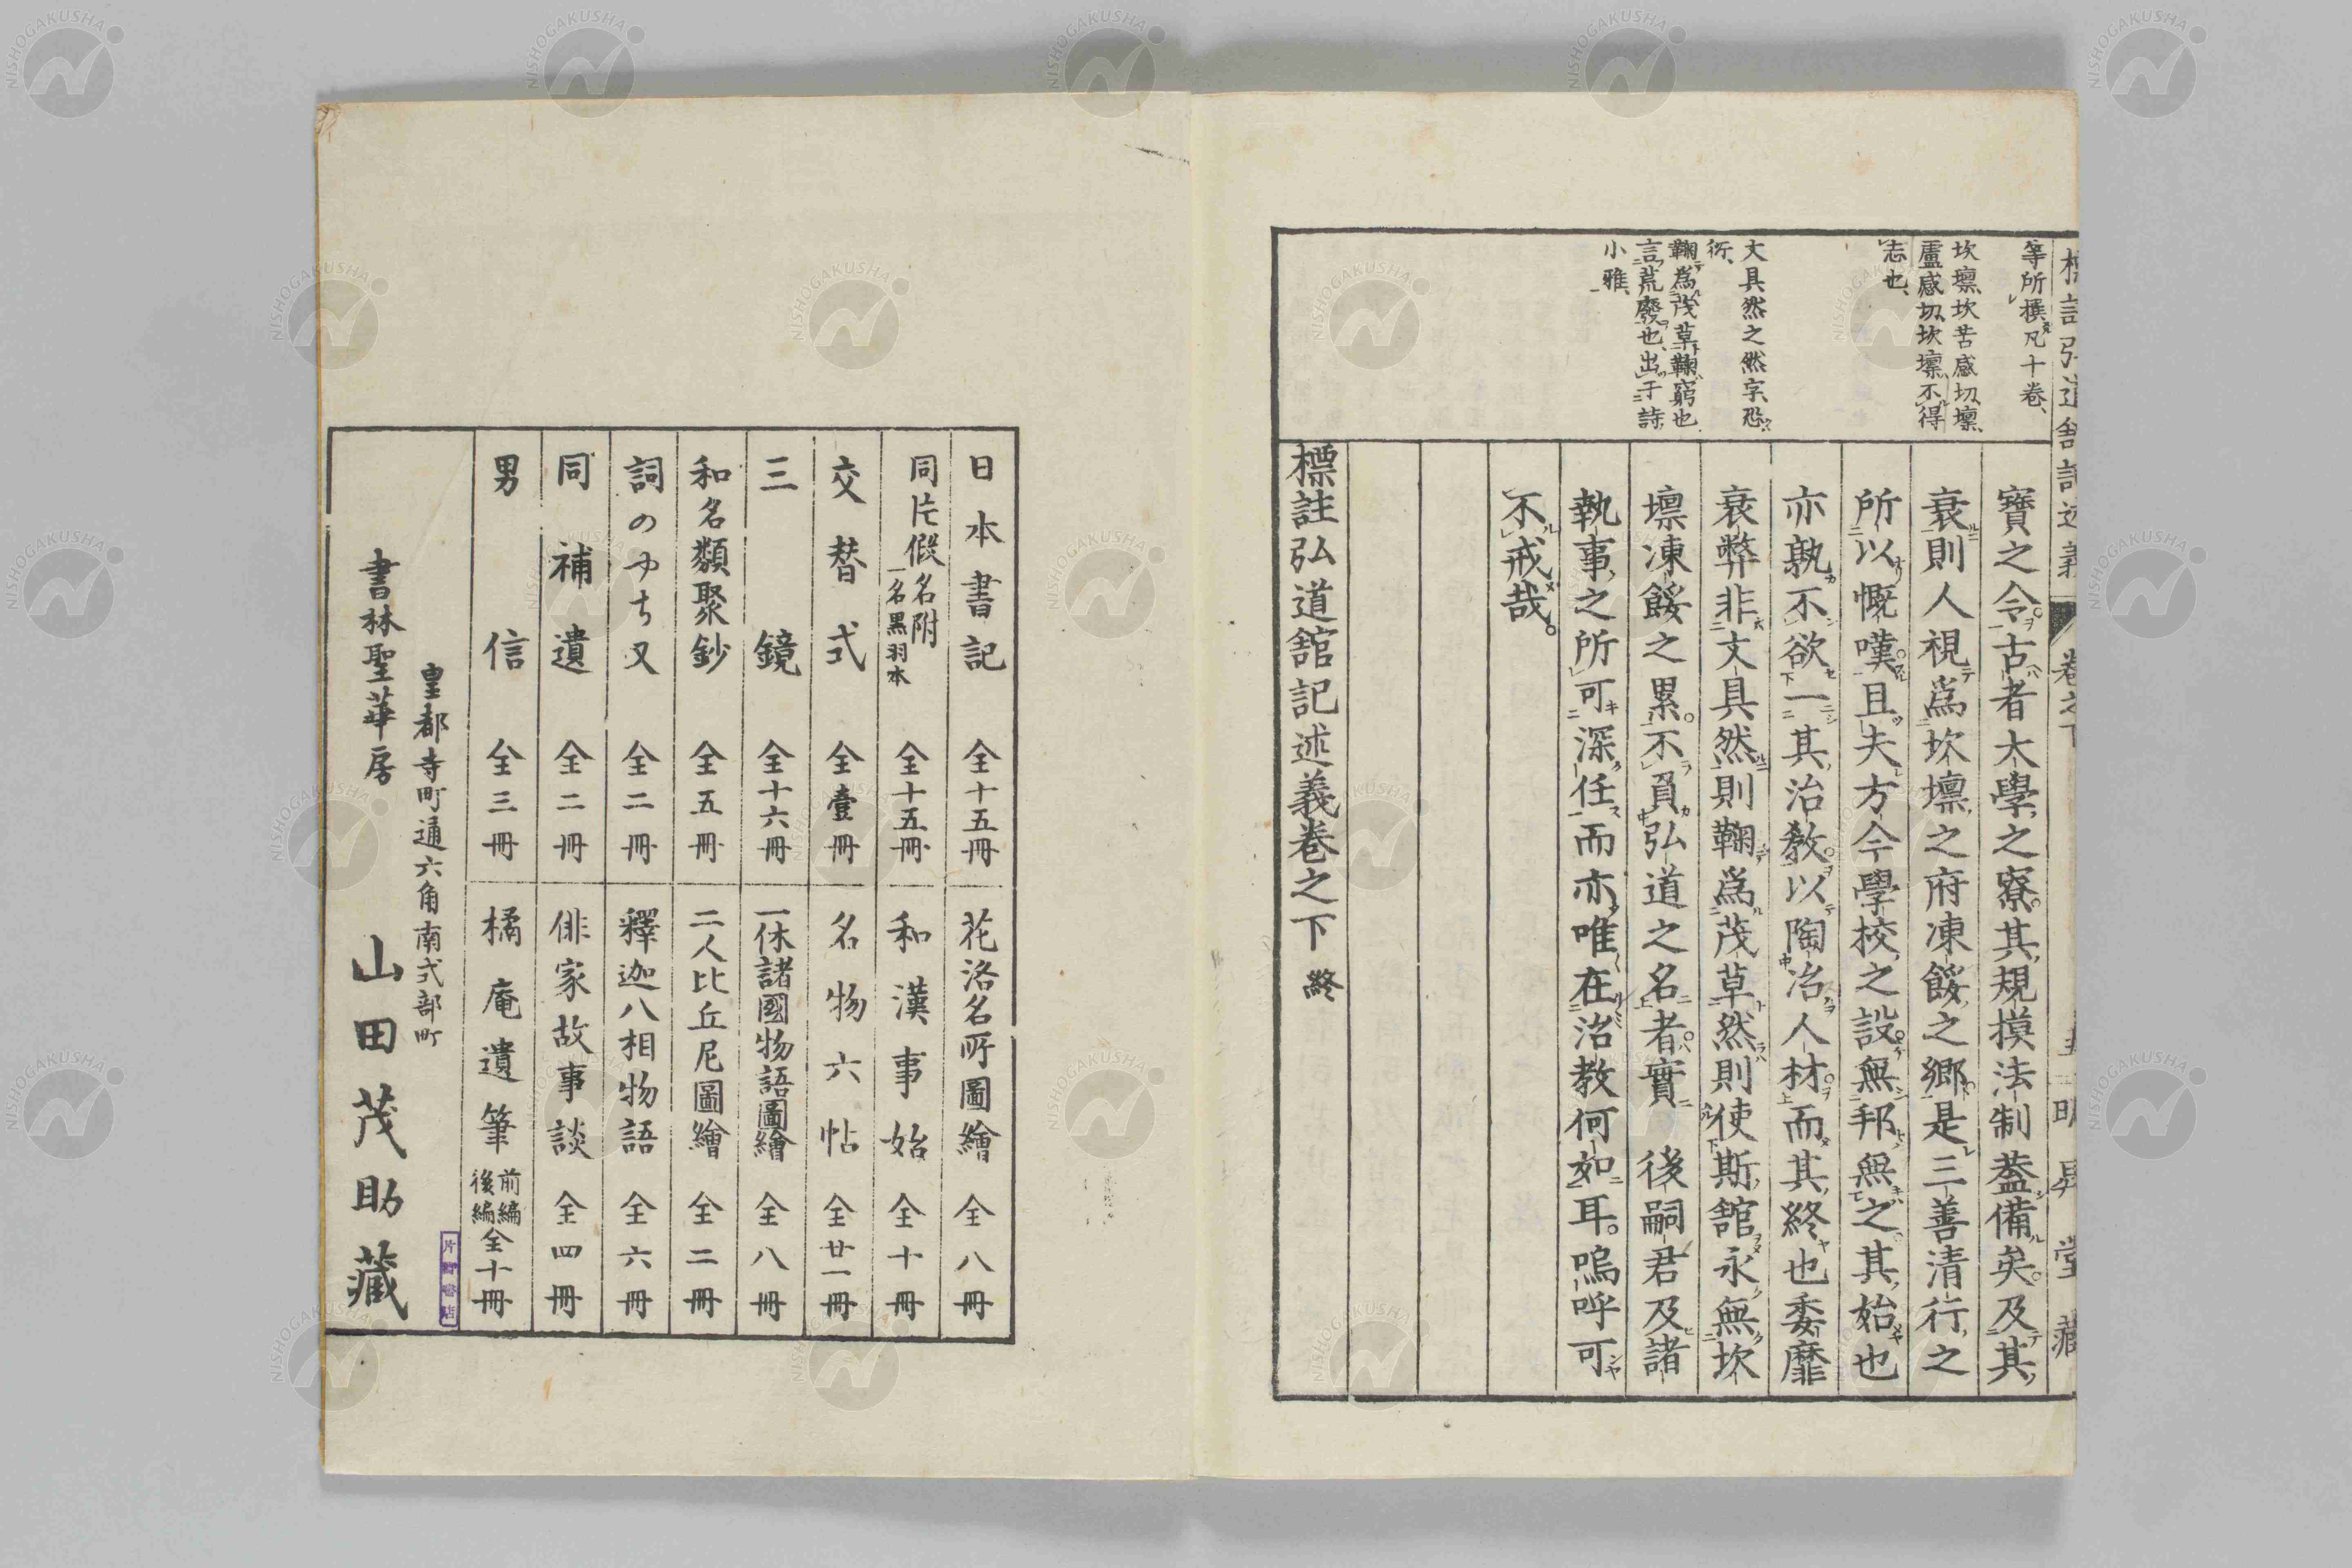 等所撰凡十卷、
坎壈、坎苦感切、壈、
盧感切、坎壈、不得
志也、
文具然之然字、恐
衍、
鞠為茂草、鞠、窮也、
言荒廢也、出于詩
小雅、
寶之令。古者大學之寮。其規摸法制蓋備矣。及其
衰則人視為坎壈之府凍餒之鄉。是三善清行之
所以慨嘆。且夫方今學校之設。無邦無之。其始也
亦孰不欲一其治教。以陶冶人材。而其終也委靡
衰弊非文具然則鞠為茂草。然則使斯舘永無坎
壈凍餒之累。不負弘道之名者。實 後嗣君及諸
執事之所可深任。而亦唯在治教何如耳。嗚呼可
不戒哉。
標註弘道舘記述義卷之下 終
日本書記 全十五冊
同片假名附 一名黑羽本 全十五冊
交替式 全壹冊
三鏡 全十六冊
和名類聚鈔 全五冊
詞のやちまた 全二冊
同補遺 全二冊
男信 全三冊
花洛名所圖繪 全八冊
和漢事始 全十冊
名物六帖 全廿一冊
一休諸國物語圖繪 全八冊
二人比丘尼圖繪 全二冊
釋迦八相物語 全六冊
俳家故事談 全四冊
橘庵遺筆 前編後編 全十冊
皇都寺町通六角南式部町
書林聖華房 山田茂助藏